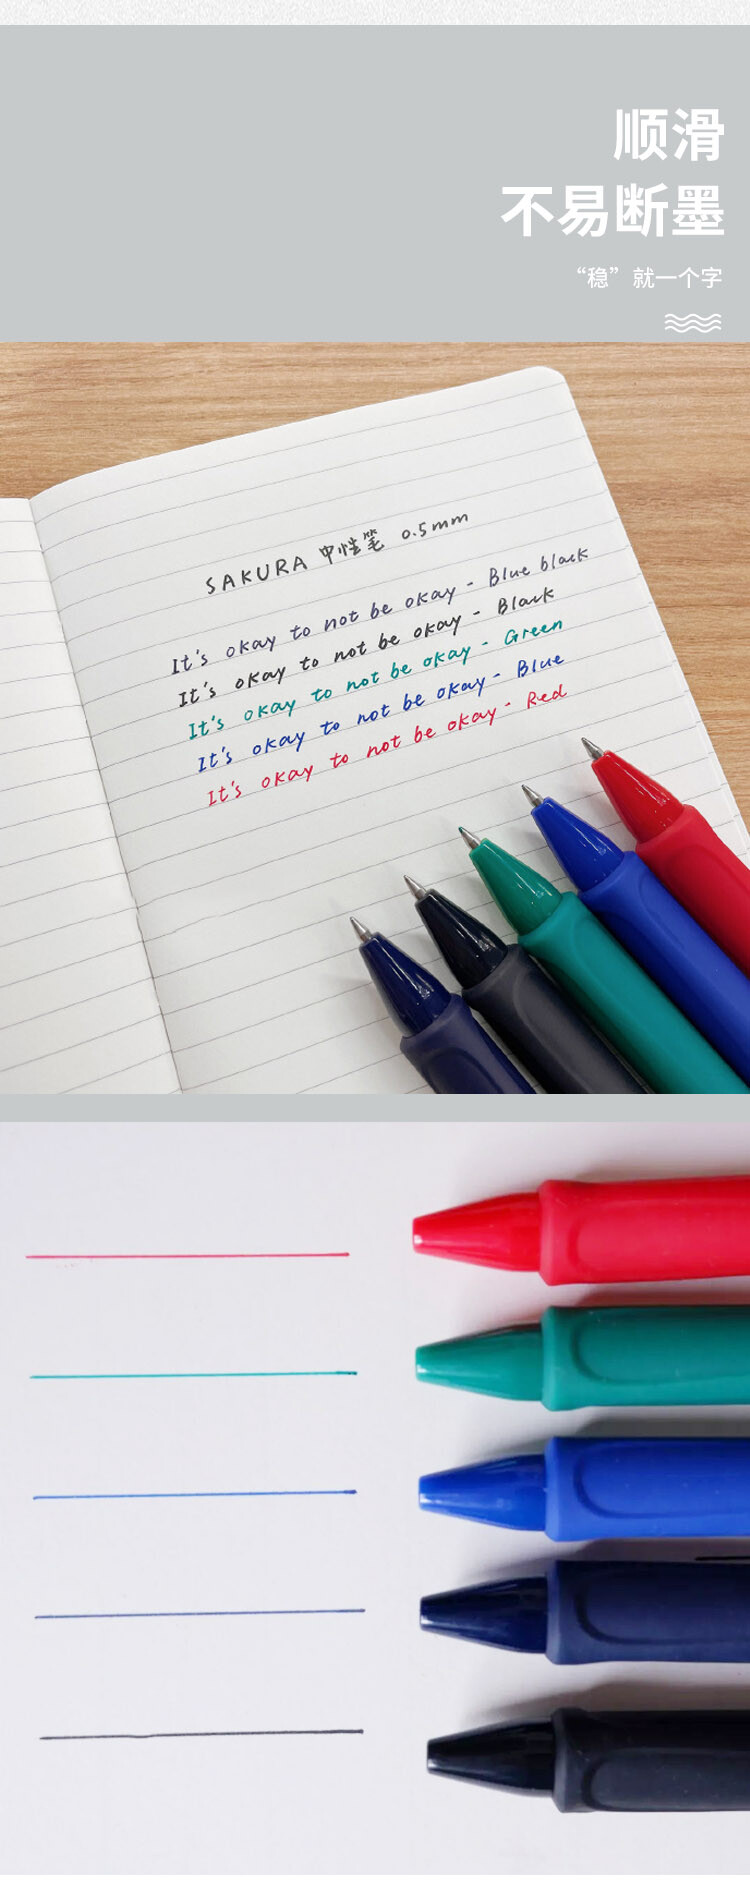 顺滑
不易断墨
“稳”就一个字
SAKURA 中性笔 0.5mm
It's okay to not be okay - Blue black
It's okay to not be okay - Black
It's okay to not be okay - Green
It's okay to not be okay - Blue
It's okay to not be okay - Red